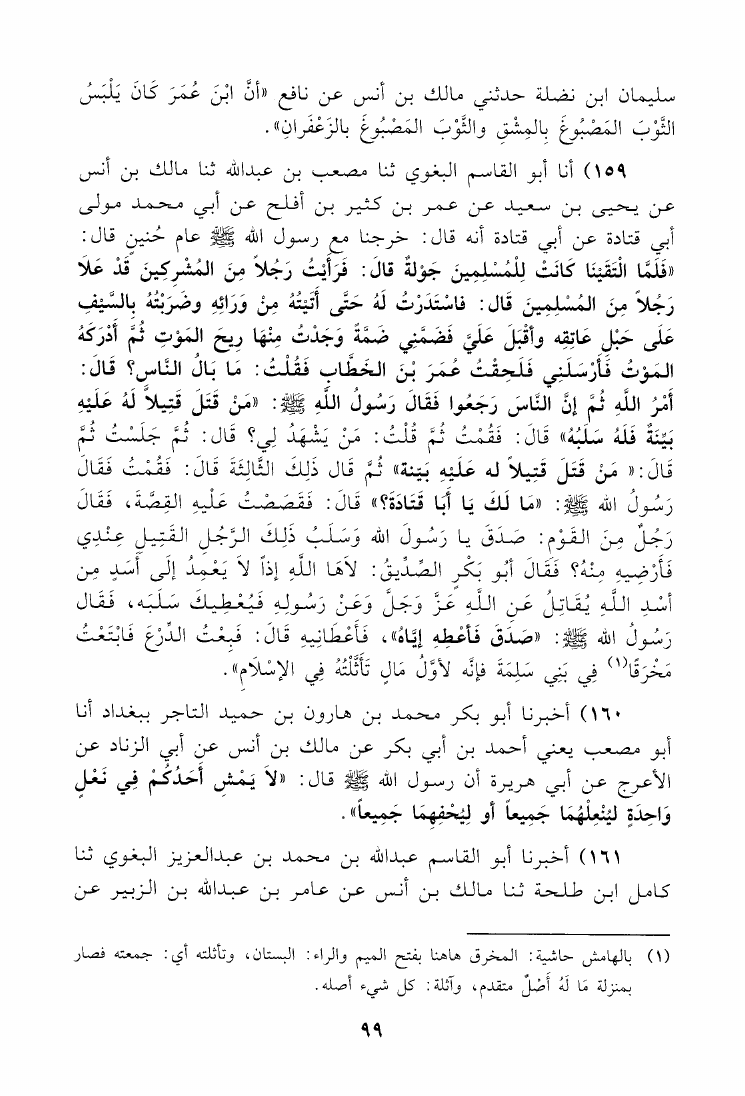 سليمان ابن نضلة حدثني مالك بن أنس عن نافع «أَنَّ ابْنَ عُمَرَ كَانَ يَلْبَسُ
الثَّوْبَ المَصْبُوغَ بِالمِشْقِ والثَّوْبَ المَصْبُوغَ بالزَعْفَرانِ».
١٥٩) أنا أبو القاسم البغوي ثنا مصعب بن عبدالله ثنا مالك بن أنس
عن يحيى بن سعيد عن عمر بن كثير بن أفلح عن أبي محمد مولى
أبي قتادة عن أبي قتادة أنه قال: خرجنا مع رسول الله ﷺ عام حُنينٍ قال:
«فَلَمَّا الْتَقَيْنَا كَانَتْ لِلْمُسلِمِينَ جَوْلَةٌ قالَ: فَرَأَيْتُ رَجُلاً مِنَ المُشْرِكِينَ قَدْ عَلَا
رَجُلاً مِنَ المُسْلِمِينَ قَال: فاسْتَدَرْتُ لَهُ حَتَّى أَتَيْتُهُ مِنْ وَرَائِهِ وضَرَبْتُهُ بِالسَّيْفِ
عَلَى حَبْلِ عَاتِقِه وأقْبَلَ عَلَيَّ فَضَمَّنِي ضَمَّةً وَجَدْتُ مِنْهَا رِيحَ المَوْتِ ثُمَّ أَدْرَكَهُ
المَوْتُ فَأَرْسَلَنِي فَلَحِقْتُ عُمَرَ بْنَ الخَطَّابِ فَقُلْتُ: مَا بَالُ النَّاسِ؟ قَالَ:
أَمْرُ اللَّهِ ثُمَّ إِنَّ النَّاسَ رَجَعُوا فَقَالَ رَسُولُ اللَّهِ ﷺ: «مَنْ قَتَلَ قَتِيلاً لَهُ عَلَيْهِ
بَيِّنَةٌ فَلَهُ سَلَبُهُ» قَالَ: فَقُمْتُ ثُمَّ قُلْتُ: مَنْ يَشْهَدُ لِي؟ قَال: ثُمَّ جَلَسْتُ ثُمَّ
قَالَ:« مَنْ قَتَلَ قَتِيلاً له عَلَيْهِ بَيّنة» ثُمَّ قال ذَلِكَ الثَّالِثَةَ قَالَ: فَقُمْتُ فَقَالَ
رَسُولُ الله ﷺ: «مَا لَكَ يَا أَبَا قَتَادَةَ؟» قَالَ: فَقَصَصْتُ عَلَيْهِ القِصَّةَ، فَقَالَ
رَجُلٌ مِنَ القَوْمِ: صَدَقَ يا رَسُولَ الله وَسَلَبُ ذَلِكَ الرَّجُلِ القَتِيلِ عِنْدِي
فَأَرْضِيهِ مِنْهُ؟ فَقَالَ أَبُو بَكْرٍ الصِّدِّيقُ: لاَهَا اللَّهِ إِذاً لاَ يَعْمِدُ إِلَى أَسَدٍ مِن
أُسْدِ اللَّهِ يُقَاتِلُ عَنِ اللَّهِ عَزَّ وَجَلَّ وَعَنْ رَسُولِهِ فَيُعْطِيكَ سَلَبَه، فَقَال
رَسُولُ الله ﷺ: «صَدَقَ فَأَعْطِهِ إِيَّاهُ»، فَأَعْطَانِيهِ قَالَ: فَبِعْتُ الدِّرْعَ فَابْتَعْتُ
مَخْرَقًا(١) فِي بَنِي سَلِمَةَ فَإِنَّه لأوَّلُ مَالٍ تَأَثَّلْتُهُ فِي الإِسْلَامِ».
١٦٠) أخبرنا أبو بكر محمد بن هارون بن حميد التاجر ببغداد أنا
أبو مصعب يعني أحمد بن أبي بكر عن مالك بن أنس عن أبي الزناد عن
الأعرج عن أبي هريرة أن رسول الله ﷺ قال: «لاَ يَمْشِ أَحَدُكُمْ فِي نَعْلٍ
وَاحِدَةٍ ليُنْعِلْهُمَا جَمِيعاً أو لِيُحْفِهِمَا جَمِيعاً».
١٦١) أخبرنا أبو القاسم عبدالله بن محمد بن عبدالعزيز البغوي ثنا
كامل ابن طلحة ثنا مالك بن أنس عن عامر بن عبدالله بن الزبير عن
(١) بالهامش حاشية: المخرق هاهنا بفتح الميم والراء: البستان، وتأثلته أي: جمعته فصار
بمنزلة مَا لَهُ أَصْلٌ متقدم، وآثلة: كل شيء أصله.
٩٩